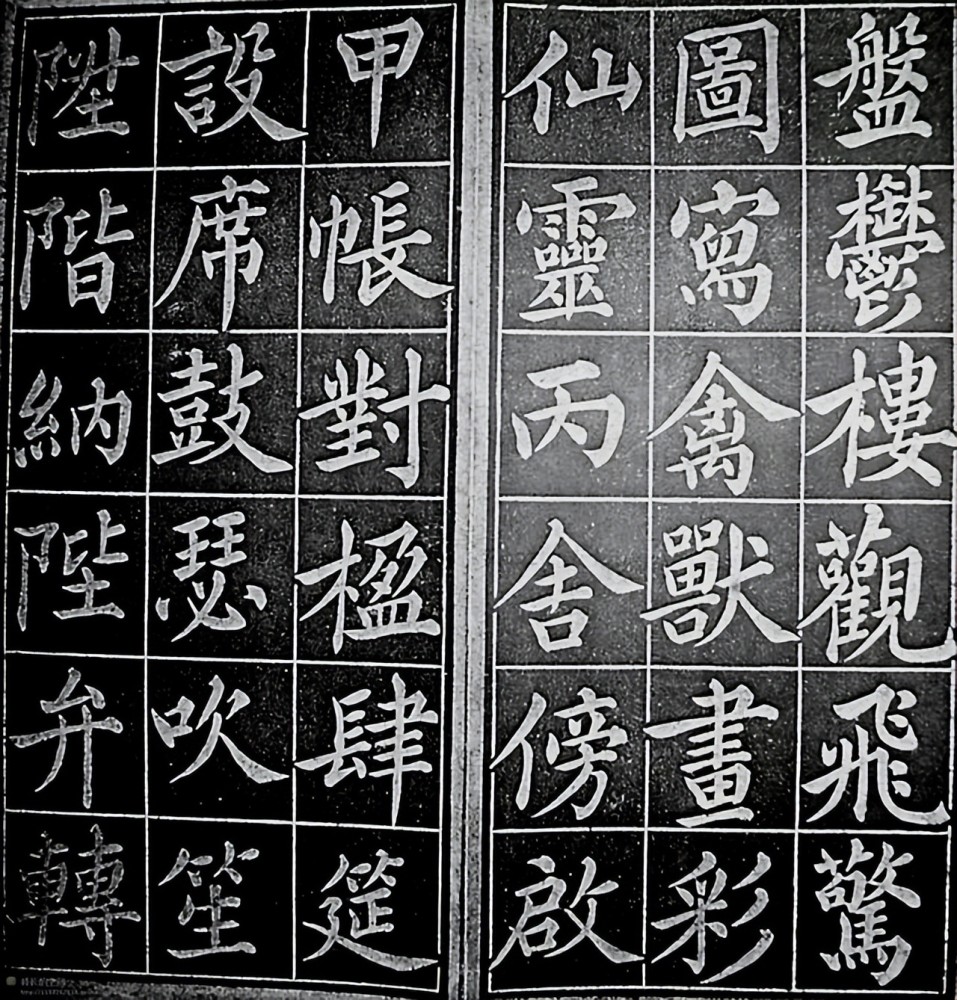 盤鬱樓觀飛驚
圖寫禽獸畫彩
仙靈丙舍傍啟
甲帳對楹肆筵
設席鼓瑟吹笙
陞階納陛弁轉